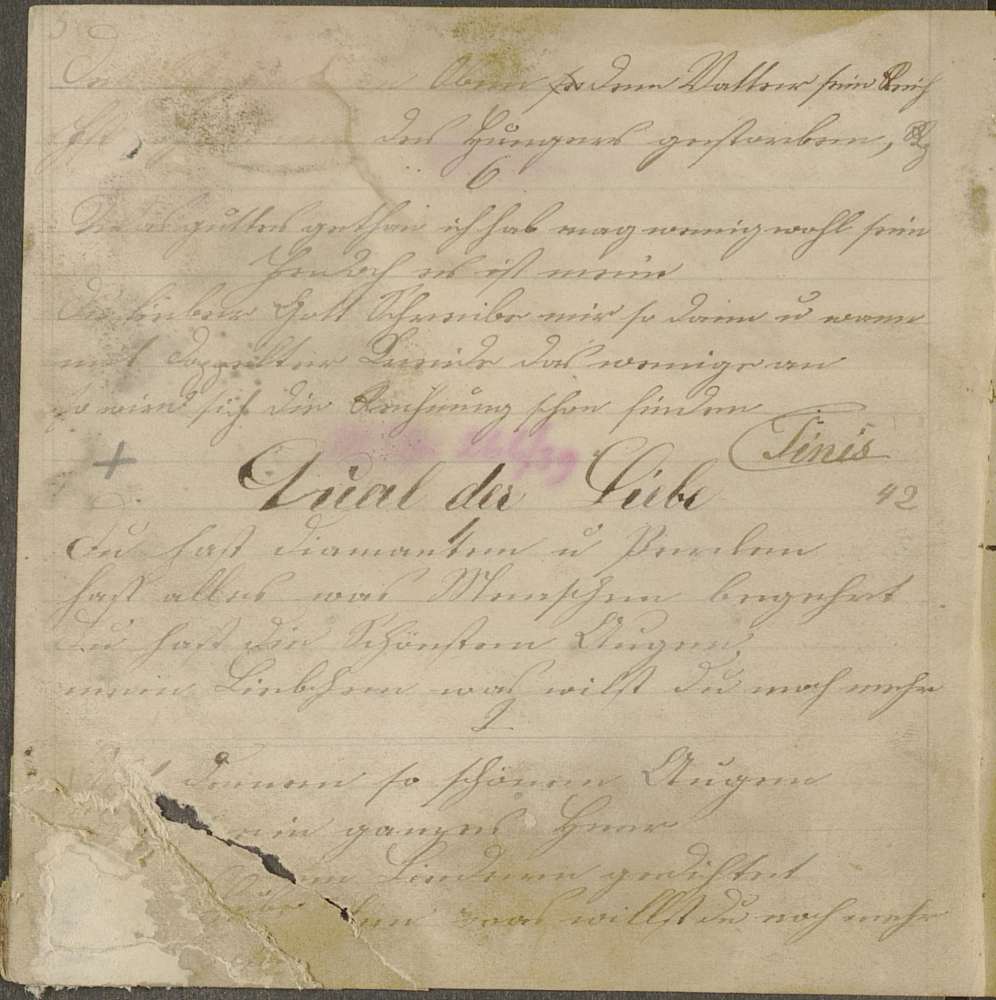 Oben so dem Vatter sein Reich
des Hungers gestorben,
6
Was guttes gethan ich hab mag wenig wohl sein
Jendoch es ist mein
Du lieber Gott Schreibe mir so dann u wann
mit doppelter Kreide das wenige an
so wird sich die Rechnung schon finden
Finis
+ Qual der Liebe 42
1
Du hast diamanten u Perlen
hast alles was Menschen begehrt
Du hast die Schönsten Augen,
mein Liebchen was wilst du noch mehr
2
deinen so schönen Augen
ein ganzes Heer
Liedern gedichtet
was willst du noch mehr